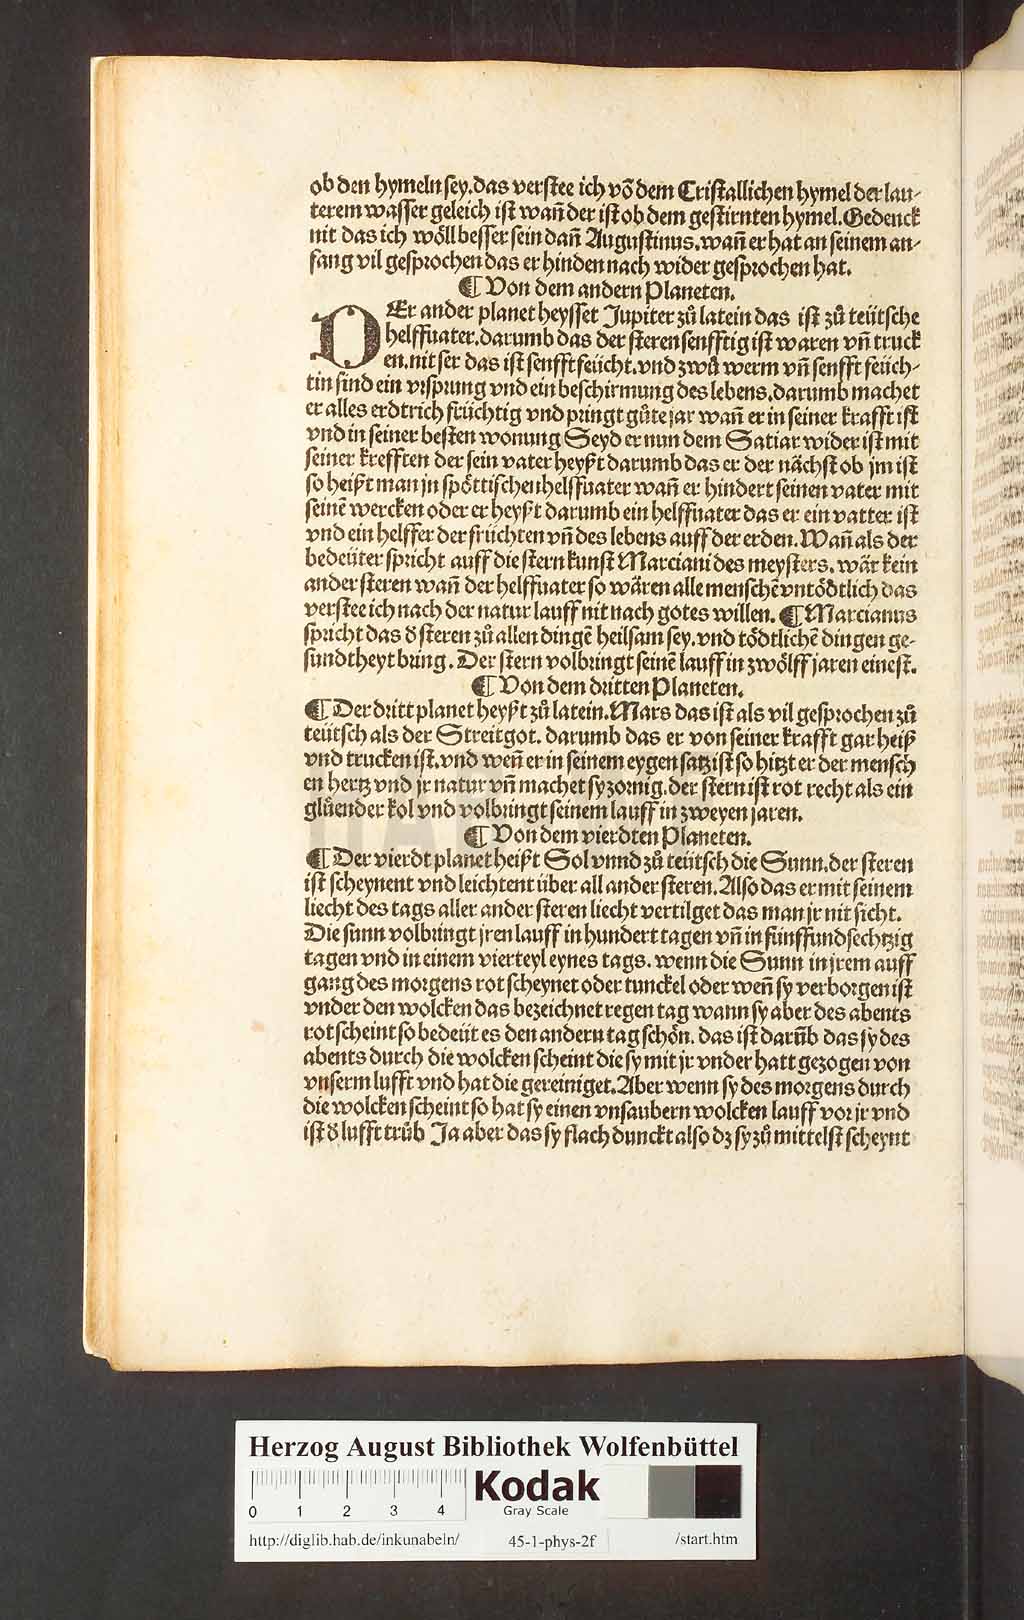 ob den hymeln sey. das verstee ich vō dem Cristallichen hymel der lau-
terem wasser geleich ist wañ der ist ob dem gestirnten hymel. Gedenck
nit das ich wöll besser sein dañ Augustinus. wañ er hat an seinem an-
fang vil gesprochen das er hinden nach wider gesprochen hat.
¶ Von dem andern Planeten.
DEr ander planet heysset Jupiter zů latein das ist zů teütsche
helffuater. darumb das der steren senfftig ist waren vñ truck
en. nit ser das ist senfft feücht. vnd zwů werm vñ senfft feüch-
tin sind ein vrsprung vnd ein beschirmung des lebens. darumb machet
er alles erdtrich früchtig vnd pringt gůte jar wañ er in seiner krafft ist
vnd in seiner besten wonung Seyd er nun dem Satiar wider ist mit
seiner krefften der sein vater heyßt darumb das er der nächst ob jm ist
so heißt man jn spöttischen helffuater wañ er hindert seinen vater mit
seinē wercken oder er heyßt darumb ein helffuater das er ein vatter ist
vnd ein helffer der früchten vñ des lebens auff der erden. Wañ als der
bedeüter spricht auff die stern kunst Marciani des meysters. wär kein
ander steren wañ der helffuater so wären alle menschē vntödtlich das
verstee ich nach der natur lauff nit nach gotes willen. ¶ Marcianus
spricht das d̄ steren zů allen dingē heilsam sey. vnd tödtlichē dingen ge-
sundtheyt bring. Der stern volbringt seinē lauff in zwölff jaren einest.
¶ Von dem dritten Planeten.
¶ Der dritt planet heyßt zů latein. Mars das ist als vil gesprochen zů
teütsch als der Streitgot. darumb das er von seiner krafft gar heiß
vnd trucken ist. vnd weñ er in seinem eygen satz ist so hitzt er der mensch
en hertz vnd jr natur vñ machet sy zornig. der stern ist rot recht als ein
glůender kol vnd volbringt seinem lauff in zweyen jaren.
¶ Von dem vierdten Planeten.
¶ Der vierdt planet heißt Sol vnnd zů teütsch die Sunn. der steren
ist scheynent vnd leichtent über all ander steren. Also das er mit seinem
liecht des tags aller ander steren liecht vertilget das man jr nit sicht.
Die sunn volbringt jren lauff in hundert tagen vñ in fünffundsechtzig
tagen vnd in einem vierteyl eynes tags. wenn die Sunn in jrem auff
gang des morgens rot scheynet oder tunckel oder weñ sy verborgen ist
vnder den wolcken das bezeichnet regen tag wann sy aber des abents
rot scheint so bedeüt es den andern tag schön. das ist darūb das sy des
abents durch die wolcken scheint die sy mit jr vnder hatt gezogen von
vnserm lufft vnd hat die gereiniget. Aber wenn sy des morgens durch
die wolcken scheint so hat sy einen vnsaubern wolcken lauff vor jr vnd
ist d̄ lufft trüb Ja aber das sy flach dunckt also dz sy zů mittelst scheynt
Herzog August Bibliothek Wolfenbüttel
0 1 2 3 4 Kodak
Gray Scale
http://diglib.hab.de/inkunabeln/ 45-1-phys-2f /start.htm